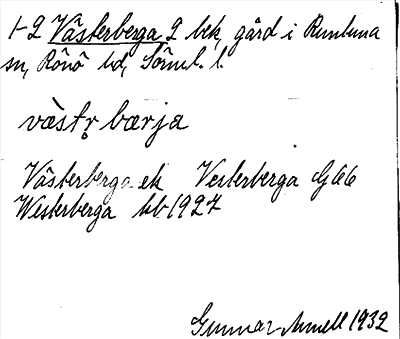 1-2 Västerberga 2 bek, gård i Runtuna
sn, Rönö hd, Söml. l.
västr̥ bærja
Västerberga ek Vesterberga Gj66
Westerberga kb 1927
Gunnar Amnell 1932